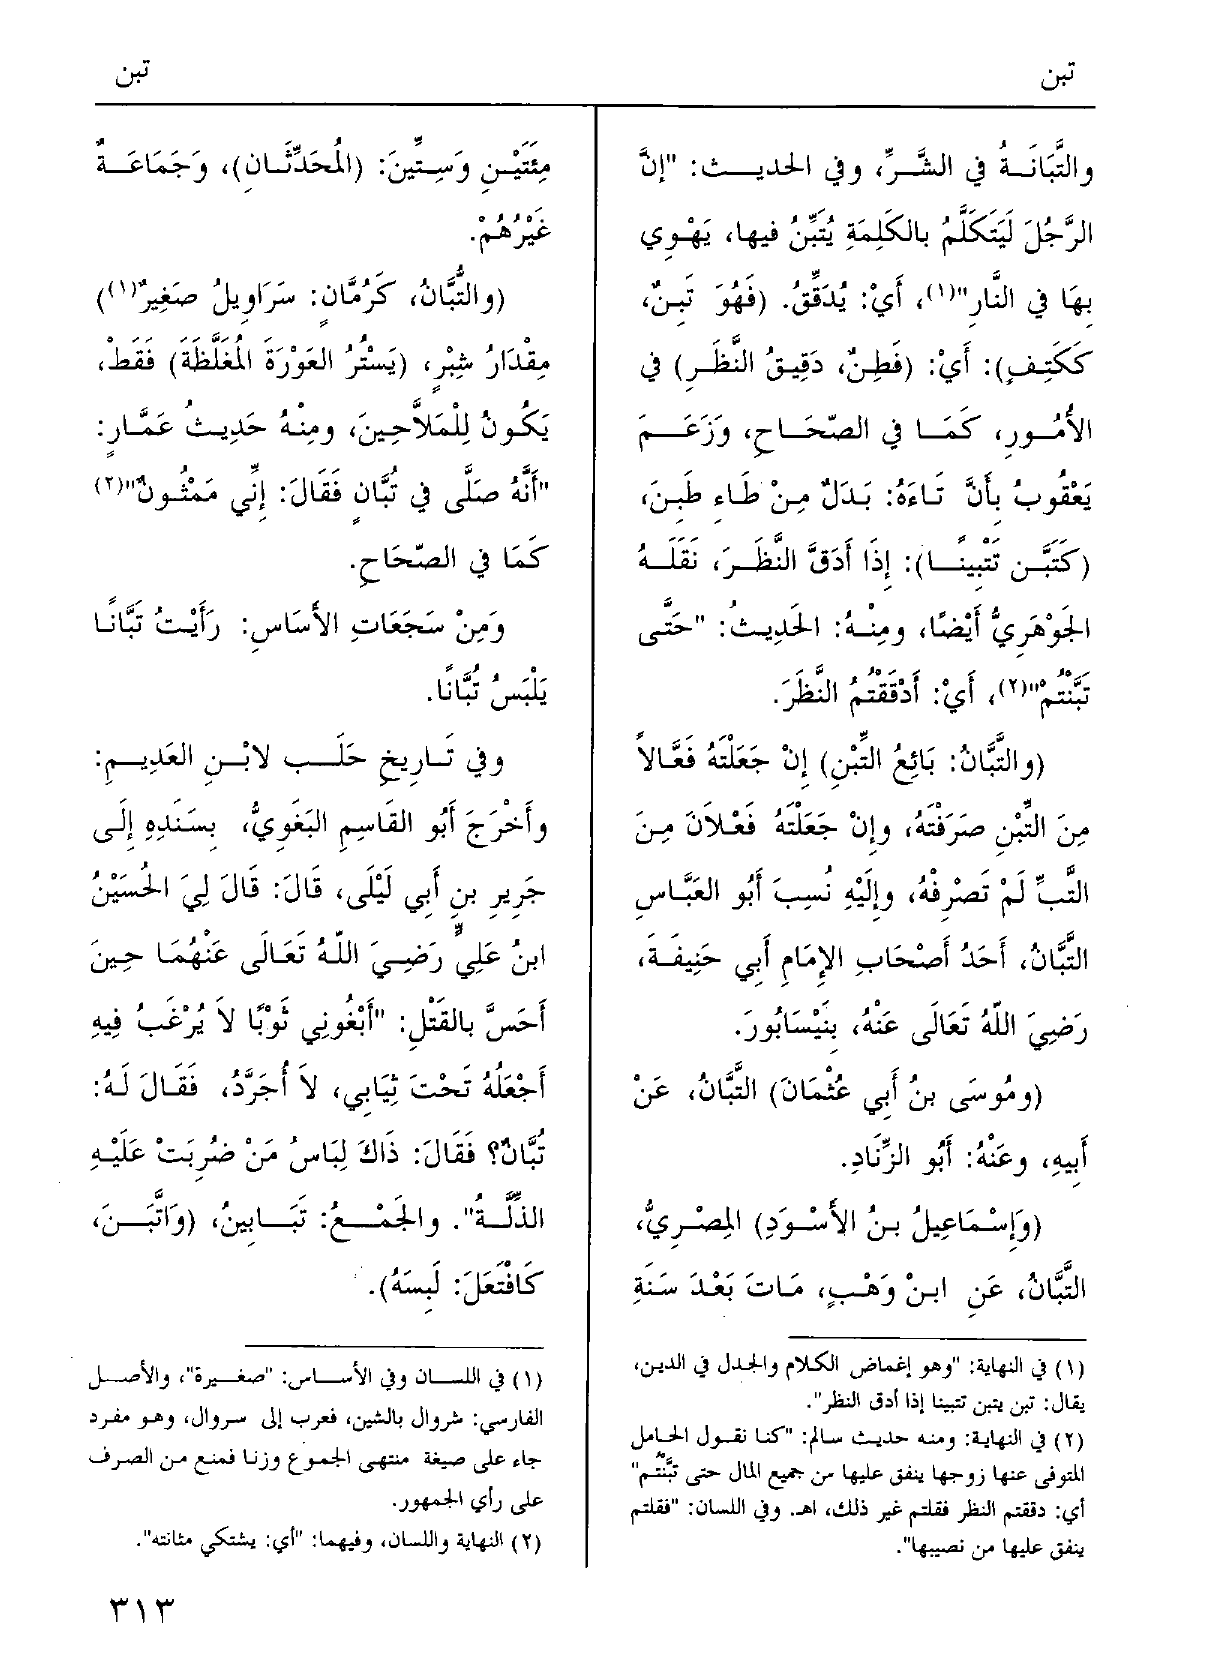 تبن
تبن
والتَّبَانَةُ فِي الشَّرِّ، وفي الحديث: "إنَّ
الرَّجُلَ لَيَتَكَلَّمُ بالكَلِمَةِ يُتَبِّنُ فيها، يَهْوِي
بِهَا فِي النَّارِ"(١)، أَيْ: يُدَقِّقُ. (فَهُوَ تَبِنٌ،
كَكَتِفٍ): أَيْ: (فَطِنٌ، دَقِيقُ النَّظَرِ) فِي
الأُمُورِ، كَمَا فِي الصِّحَاحِ، وَزَعَمَ
يَعْقُوبُ بِأَنَّ تَاءَهُ: بَدَلٌ مِنْ طَاءِ طَبِنَ،
(كَتَبَّنَ تَتْبِينًا): إِذَا أَدَقَّ النَّظَرَ، نَقَلَهُ
الجَوْهَرِيُّ أَيْضًا، ومِنْهُ: الحَدِيثُ: "حَتَّى
تَبَّنْتُمْ"(٢)، أَيْ: أَدْقَقْتُمُ النَّظَرَ.
(والتَّبَّانُ: بَائِعُ التِّبْنِ) إِنْ جَعَلْتَهُ فَعَّالاً
مِنَ التِّبْنِ صَرَفْتَهُ، وإِنْ جَعَلْتَهُ فَعْلاَنَ مِنَ
التَّبِّ لَمْ تَصْرِفْهُ، وإِلَيْهِ نُسِبَ أَبُو العَبَّاسِ
التَّبَّانُ، أَحَدُ أَصْحَابِ الإِمَامِ أَبِي حَنِيفَةَ،
رَضِيَ اللهُ تَعَالَى عَنْهُ، بِنَيْسَابُورَ.
(ومُوسَى بنُ أَبِي عُثْمَانَ) التَّبَّانُ، عَنْ
أَبِيهِ، وعَنْهُ: أَبُو الزِّنَادِ.
(وَإِسْمَاعِيلُ بنُ الأَسْوَدِ) المِصْرِيُّ،
التَّبَّانُ، عَنِ ابنْ وَهْبٍ، مَاتَ بَعْدَ سَنَةِ
(١) في النهاية: "وهو إغماض الكلام والجدل في الدين،
يقال: تبن يتبن تتبينا إذا أدق النظر".
(٢) في النهاية: ومنه حديث سالم: "كنا نقول الحامل
المتوفى عنها زوجها ينفق عليها من جميع المال حتى تَبَّنْتم"
أي: دققتم النظر فقلتم غير ذلك، اهـ. وفي اللسان: "فقلتم
ينفق عليها من نصيبها".
مِئَتَيْنِ وَسِتِّينَ: (المُحَدِّثَانِ)، وَجَمَاعَةٌ
غَيْرُهُمْ.
(والتُّبَّانُ، كَرُمَّانٍ: سَرَاوِيلُ صَغِيرٌ(١))
مِقْدَارُ شِبْرٍ، (يَسْتُرُ العَوْرَةَ المُغَلَّظَةَ) فَقَطْ،
يَكُونُ لِلْمَلاَّحِينَ، ومِنْهُ حَدِيثُ عَمَّارٍ:
"أَنَّهُ صَلَّى فِي تُبَّانٍ فَقَالَ: إِنِّي مَمْثُونٌ"(٢)
كَمَا فِي الصِّحَاحِ.
وَمِنْ سَجَعَاتِ الأَسَاسِ: رَأَيْتُ تَبَّانًا
يَلْبَسُ تُبَّانًا.
وفي تَارِيخِ حَلَبَ لاِبْنِ العَدِيمِ:
وأَخْرَجَ أَبُو القَاسِمِ البَغَوِيُّ، بِسَنَدِهِ إِلَى
جَرِيرِ بنِ أَبِي لَيْلَى، قَالَ: قَالَ لِيَ الحُسَيْنُ
ابنُ عَلِيٍّ رَضِيَ اللهُ تَعَالَى عَنْهُمَا حِينَ
أَحَسَّ بالقَتْلِ: "أَبْغُونِي ثَوْبًا لاَ يُرْغَبُ فِيهِ
أَجْعَلُهُ تَحْتَ ثِيَابِي، لاَ أُجَرَّدُ، فَقَالَ لَهُ:
تُبَّانٌ؟ فَقَالَ: ذَاكَ لِبَاسُ مَنْ ضُرِبَتْ عَلَيْهِ
الذِّلَّةُ". والجَمْعُ: تَبَابِينُ، (وَاتَّبَنَ،
كَافْتَعَلَ: لَبِسَهُ).
(١) في اللسان وفي الأساس: "صغيرة"، والأصل
الفارسي: شروال بالشين، فعرب إلى سروال، وهو مفرد
جاء على صيغة منتهى الجموع وزنا فمنع من الصرف
على رأي الجمهور.
(٢) النهاية واللسان، وفيهما: "أي: يشتكي مثانته".
٣١٣